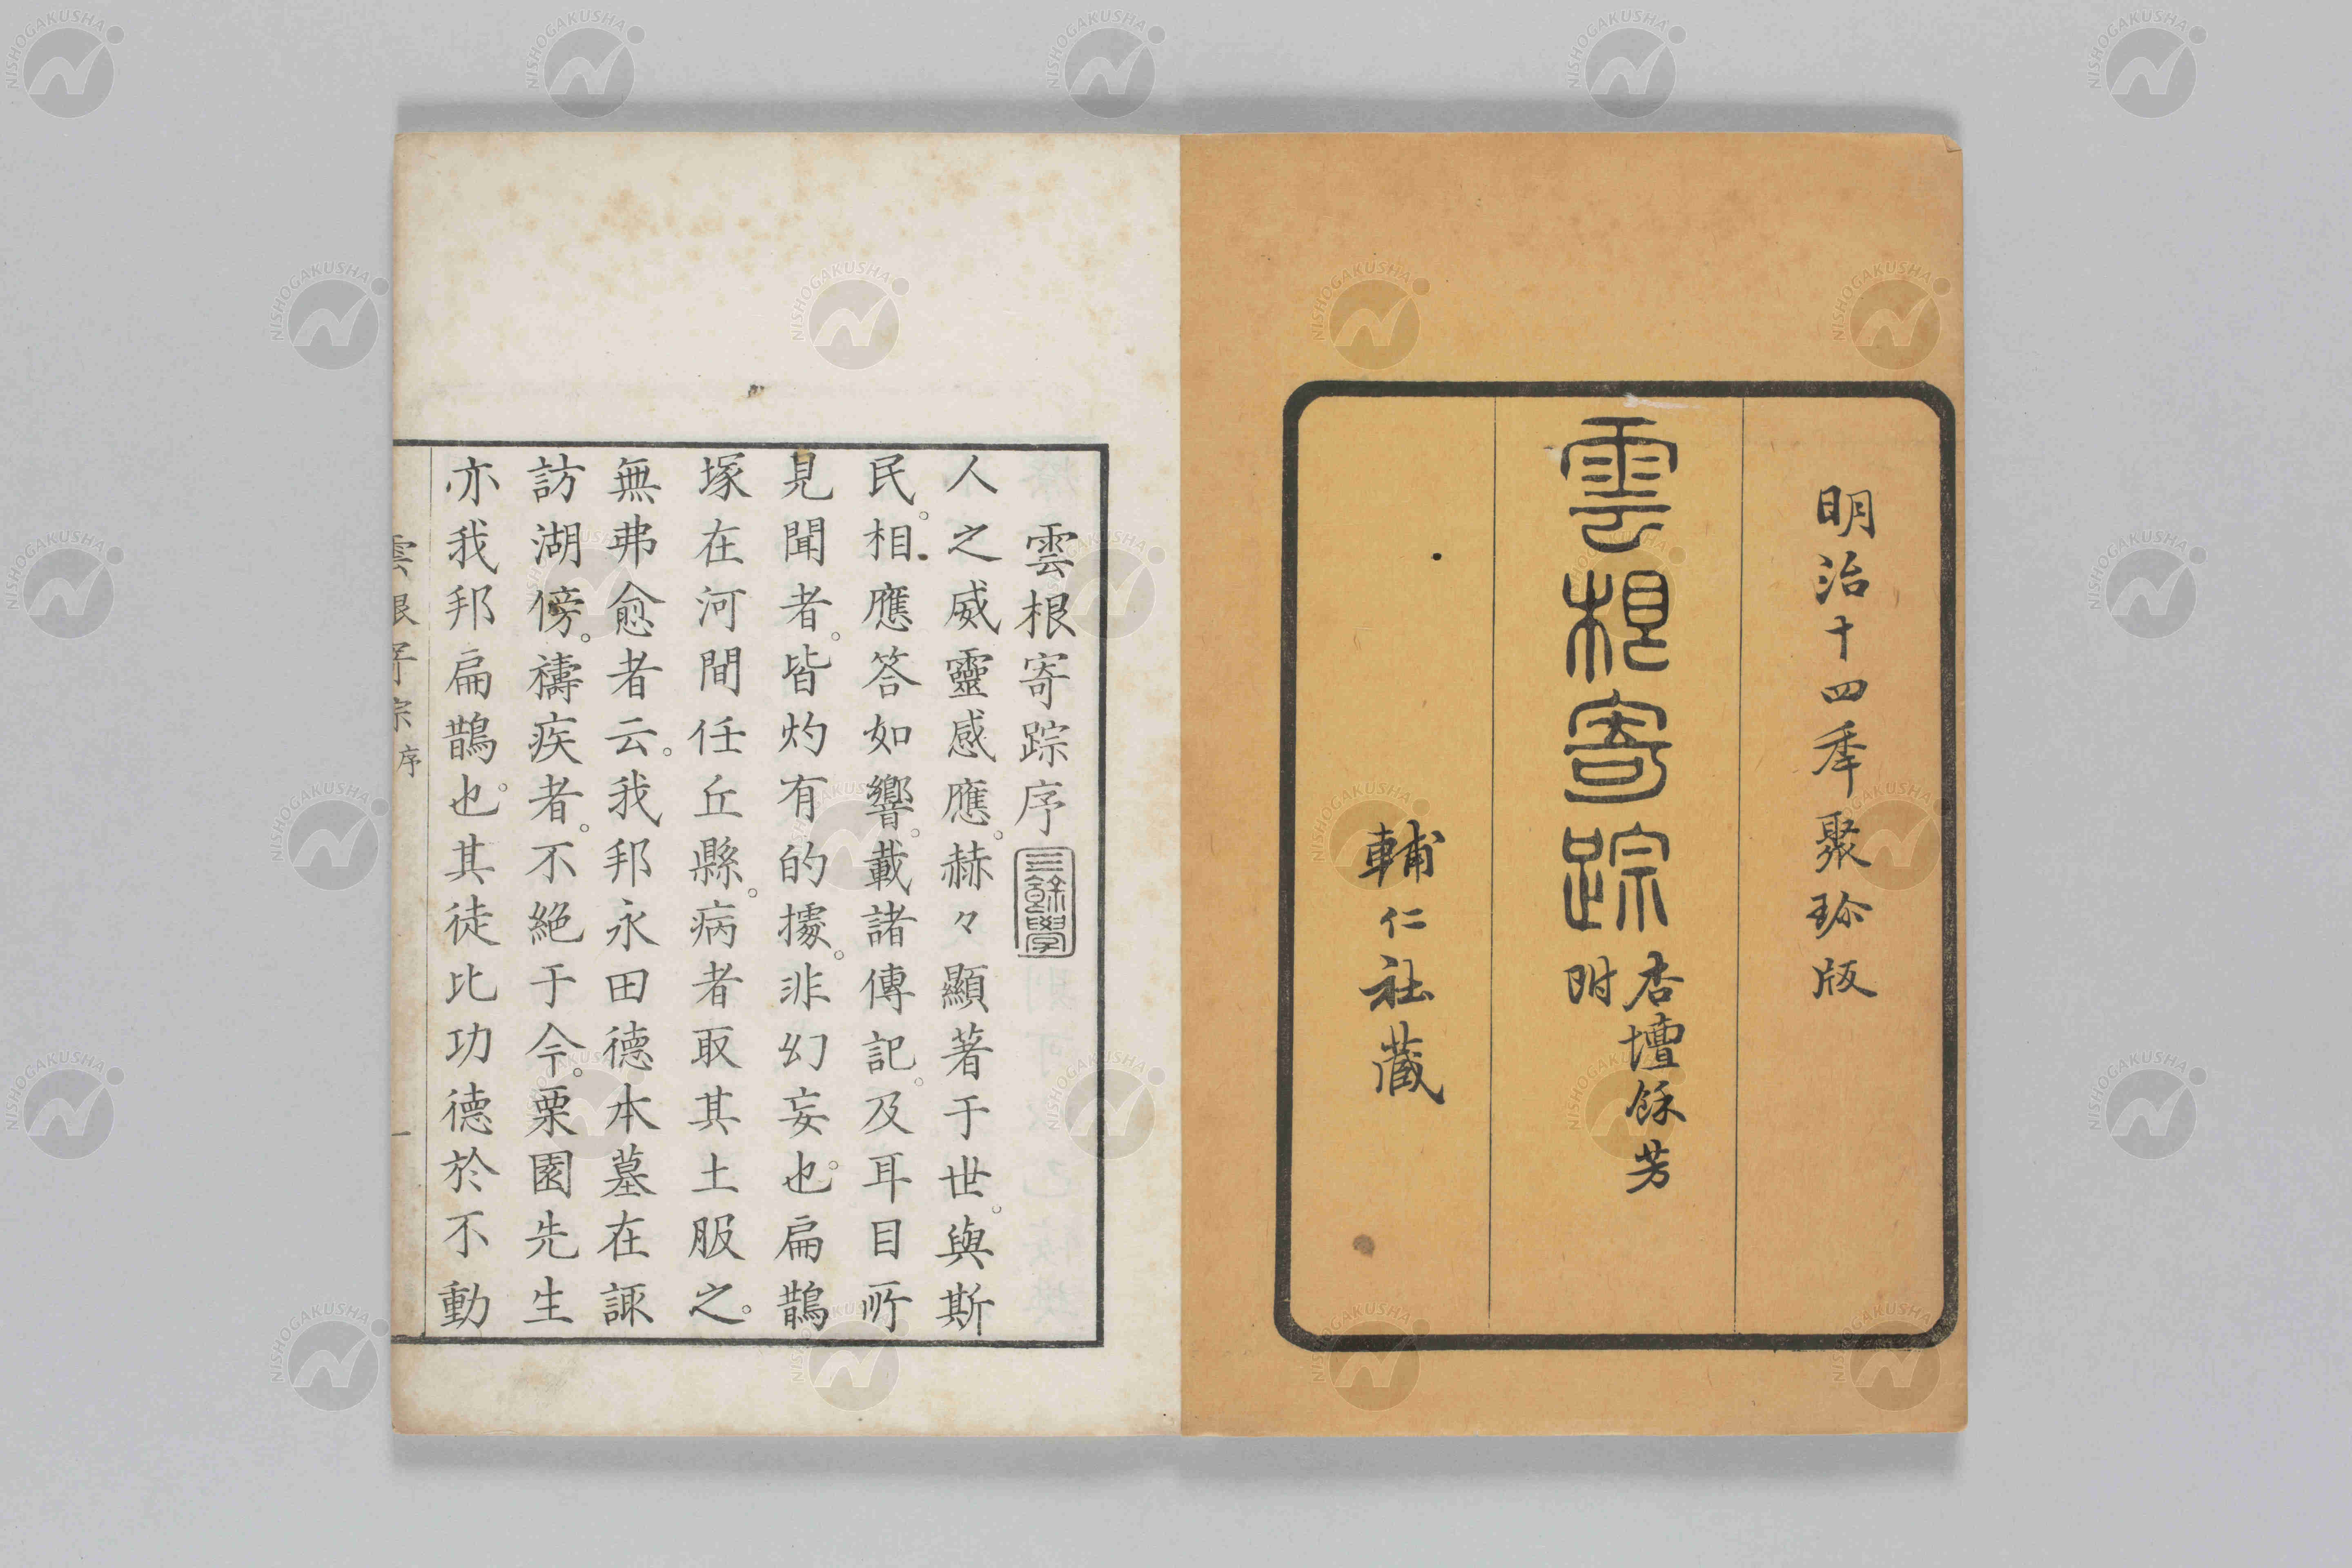 明治十四季聚珍版
雲根寄踪
杏壇餘芳
附
輔仁社藏
雲根寄踪序
三餘學
人之威靈感應。赫々顯著于世。與斯
民。相應答如響。載諸傳記。及耳目所
見聞者。皆灼有的據。非幻妄也。扁鵲
塚在河間任丘縣。病者取其土服之。
無弗愈者云。我邦永田德本墓在諏
訪湖傍。禱疾者。不絕于今。栗園先生
亦我邦扁鵲也。其徒比功德於不動
雲根寄踪 序
一
NISHOGAKUSHA